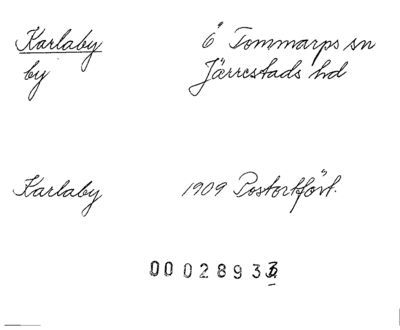 Karlaby Ö Tommarps sn
by Järrestads hd
Karlaby 1909 Postortfört.
00 028933